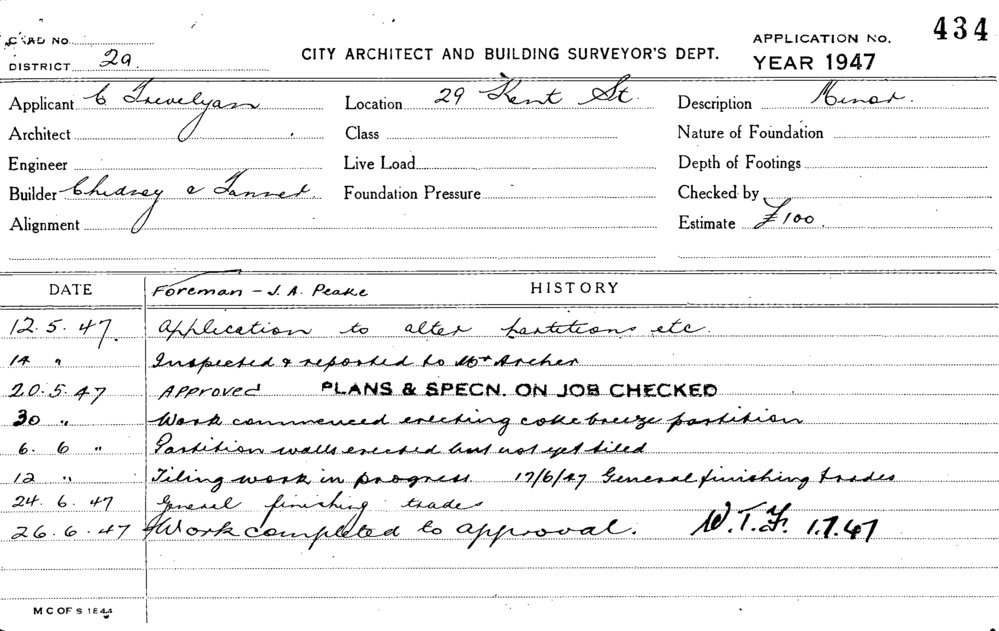 434
CARD NO.
APPLICATION NO.
DISTRICT 2a
CITY ARCHITECT AND BUILDING SURVEYOR'S DEPT.
YEAR 1947
Applicant C Trevelyan Location 29 Kent St. Description Minor.
Architect Class Nature of Foundation
Engineer Live Load Depth of Footings
Builder Chidzey & Tanner Foundation Pressure Checked by
Alignment Estimate £100
DATE Foreman - J. A. Peake HISTORY
12.5.47. Application to alter partitions etc.
14 " Inspected & reported to Mr Archer
20.5.47 Approved PLANS & SPECN. ON JOB CHECKED
30 " Work commenced erecting coke breeze partition
6. 6 " Partition walls erected but not yet tiled
12 " Tiling work in progress 17/6/47 General finishing trades
24. 6. 47 General finishing trades
26.6.47 Work completed to approval. W.T.F. 1.7.47
M C OF S 1E44